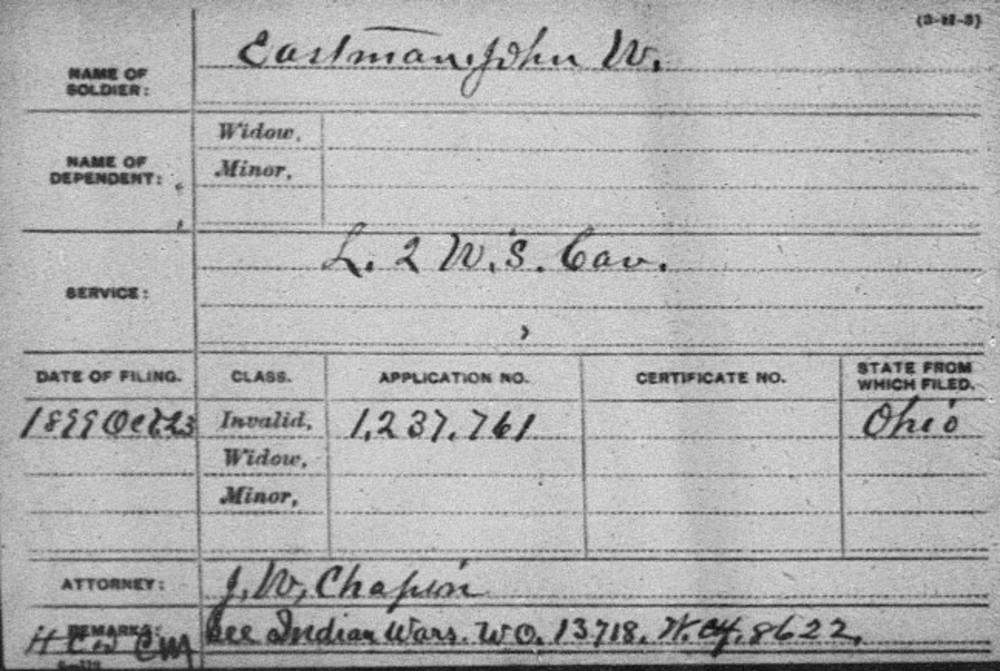 (3-H-3)
NAME OF SOLDIER: Eastman, John W.
NAME OF DEPENDENT:
Widow,
Minor,
SERVICE: L. 2 U.S. Cav.
DATE OF FILING. CLASS. APPLICATION NO. CERTIFICATE NO. STATE FROM WHICH FILED.
1899 Oct 23 Invalid, 1,237,761 Ohio
Widow,
Minor,
ATTORNEY: J. W. Chapin
REMARKS: See Indian Wars. W.O. 13718. W. Ctf. 8622.